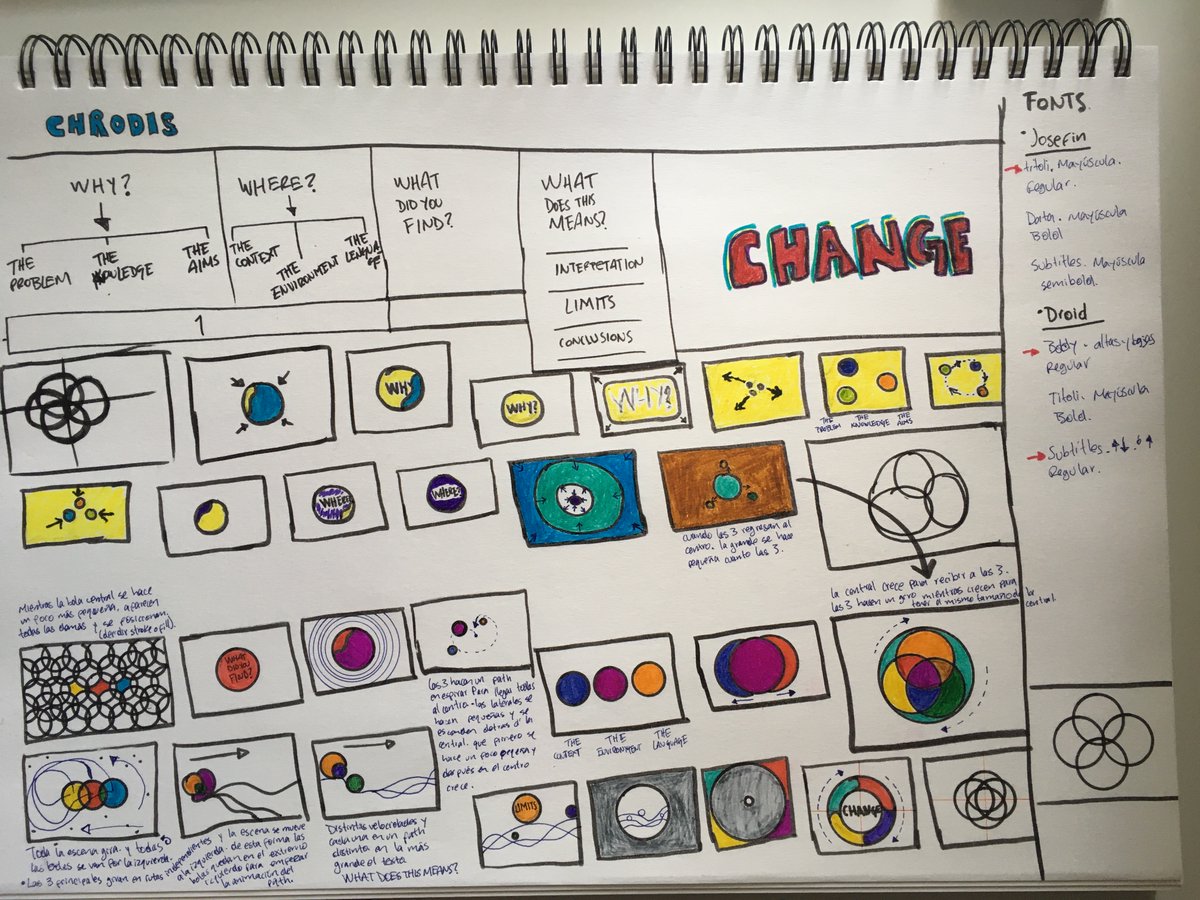 CHRODIS
WHY?
THE
PROBLEM
THE
KNOWLEDGE
THE
AIMS
WHERE?
THE
CONTEXT
THE
ENVIRONMENT
THE
LENGUA
GE
WHAT
DID YOU
FIND?
WHAT
DOES THIS
MEANS?
INTERPRETATION
LIMITS
CONCLUSIONS
CHANGE
1
FONTS
• Josefin
titoli. Mayúscula.
Regular.
Data. Mayúscula
Bold
Subtitles. Mayúscula
semibold.
• Droid
Body. altas y bajas
Regular
Titoli. Mayúscula
Bold.
Subtitles.
Regular.
WHY
WHY?
WHY?
THE
PROBLEM
THE
KNOWLEDGE
THE
AIMS
WHERE
WHERE?
cuando las 3 regresan al
centro. la grande se hace
pequeña cuanto las 3.
la central crece para recibir a las 3.
las 3 hacen un giro mientras crecen para
tener el mismo tamaño de la
central.
Mientras la bola central se hace
un poco más pequeña, aparecen
todas las demás y se posicionan.
(decidir stroke o fill).
WHAT
DID YOU
FIND?
las 3 hacen un path
en espiral para llegar todas
al centro. los laterales se
hacen pequeñas y se
esconden detras d la
central. que primero se
hace un poco pequeña y
después en el centro
crece.
THE
CONTEXT
THE
ENVIRONMENT
THE
LANGUAGE
Toda la escena gira. y todas
las bolas se van por la izquierda.
• Las 3 principales giran en rutas independientes
y la escena se mueve
a la izquierda. de esta forma las
bolas quedan en el extremo
izquierdo para empezar
la animación del
Path.
Distintas velocidades y
cada una en un path
distinto en la más
grande el texto
WHAT DOES THIS MEANS?
LIMITS
CHANGE